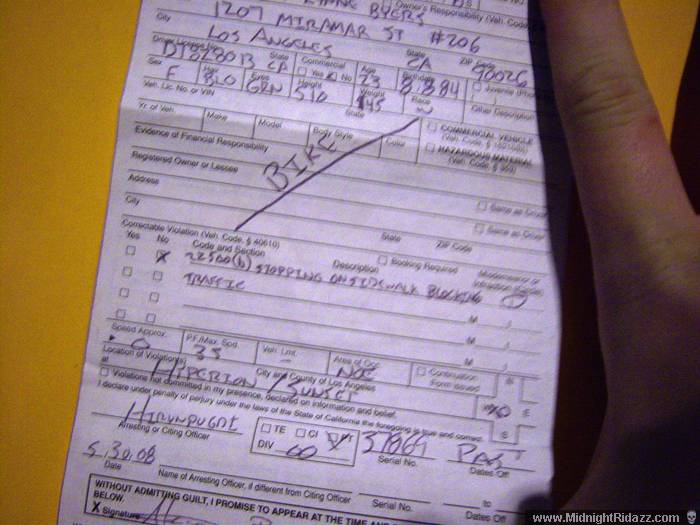 BYERS
Owner's Responsibility (Veh. Code
1207 MIRAMAR ST #206
City State ZIP Code
LOS ANGELES CA 90026
Driver License No. State Commercial Age Birthdate
CA Yes No 23 8.8.84 Juvenile
Sex Hair Eyes Height Weight Race Other Description
F BLO GRN 510 145 W
Veh. Lic. No. or VIN State
COMMERCIAL VEHICLE
Yr. of Veh. Make Model Body Style Color
HAZARDOUS MATERIAL
(Veh. Code, § 353)
Evidence of Financial Responsibility
BIKE
Registered Owner or Lessee
Same as Driver
Address
Same as Driver
City State ZIP Code
Correctable Violation (Veh. Code, § 40610) Booking Required
Yes No Code and Section Description Misdemeanor or Infraction (Circle)
22500(b) STOPPING ON SIDEWALK BLOCKING I
TRAFFIC
M I
M I
Speed Approx. P.F./Max. Spd. Veh. Lmt. Area of Occ. Continuation Form Issued
0 35 -
Location of Violation(s) City and County of Los Angeles
at HIPERION / SUNSET
Violations not committed in my presence, declared on information and belief.
I declare under penalty of perjury under the laws of the State of California the foregoing is true and correct.
Arresting or Citing Officer TE CI DIV Serial No. Dates Off
5.30.08
Date Name of Arresting Officer, if different from Citing Officer Serial No. to Dates Off
WITHOUT ADMITTING GUILT, I PROMISE TO APPEAR AT THE TIME AND
BELOW.
X Signature
www.MidnightRidazz.com